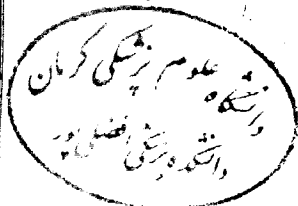 دانشگاه علوم پزشکی کرمان
دانشکده پزشکی افضلی پور